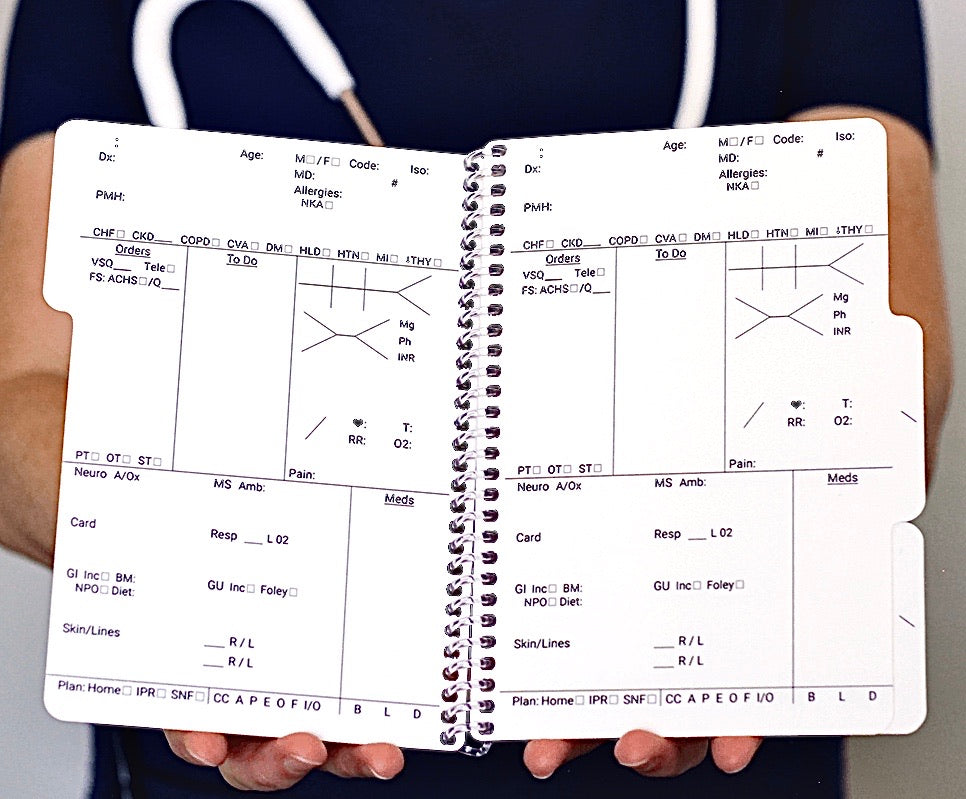 :
Age: M☐/F☐ Code: Iso:
Dx:
MD: #
Allergies:
NKA☐
PMH:
CHF☐ CKD___ COPD☐ CVA☐ DM☐ HLD☐ HTN☐ MI☐ THY☐
Orders
VSQ___ Tele☐
FS: ACHS☐/Q___
PT☐ OT☐ ST☐
To Do
Mg
Ph
INR
/ ♥: T:
RR: O2:
Pain:
Neuro A/Ox MS Amb:
Card Resp ___ L 02
GI Inc☐ BM: GU Inc☐ Foley☐
NPO☐ Diet:
Skin/Lines ___ R / L
___ R / L
Meds
Plan: Home☐ IPR☐ SNF☐ CC A P E O F I/O B L D
:
Age: M☐/F☐ Code: Iso:
Dx:
MD: #
Allergies:
NKA☐
PMH:
CHF☐ CKD___ COPD☐ CVA☐ DM☐ HLD☐ HTN☐ MI☐ THY☐
Orders
VSQ___ Tele☐
FS: ACHS☐/Q___
PT☐ OT☐ ST☐
To Do
Mg
Ph
INR
/ ♥: T:
RR: O2:
Pain:
Neuro A/Ox MS Amb:
Card Resp ___ L 02
GI Inc☐ BM: GU Inc☐ Foley☐
NPO☐ Diet:
Skin/Lines ___ R / L
___ R / L
Meds
Plan: Home☐ IPR☐ SNF☐ CC A P E O F I/O B L D